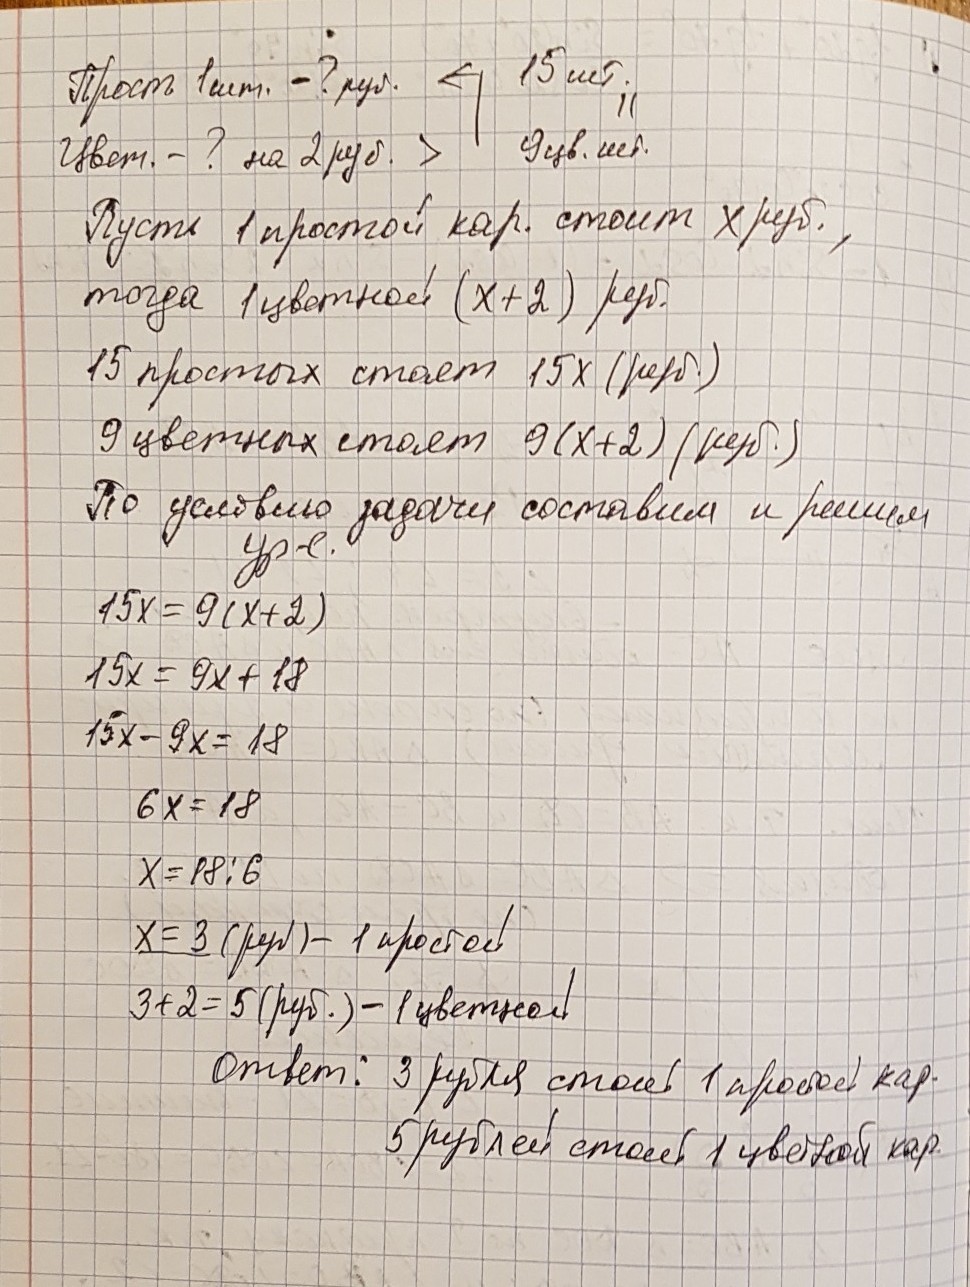 Прост 1 шт. - ? руб. < 15 шт.
||
Цвет. - ? на 2 руб. > 9 цв. шт.
Пусть 1 простой кар. стоит x руб.,
тогда 1 цветной (x+2) руб.
15 простых стоят 15x (руб.)
9 цветных стоят 9(x+2) (руб.)
По условию задачи составим и решим
ур-е.
15x = 9(x+2)
15x = 9x + 18
15x - 9x = 18
6x = 18
x = 18:6
x = 3 (руб) - 1 простой
3+2 = 5 (руб.) - 1 цветной
Ответ: 3 рубля 1 простой кар.
5 рублей 1 цветной кар.